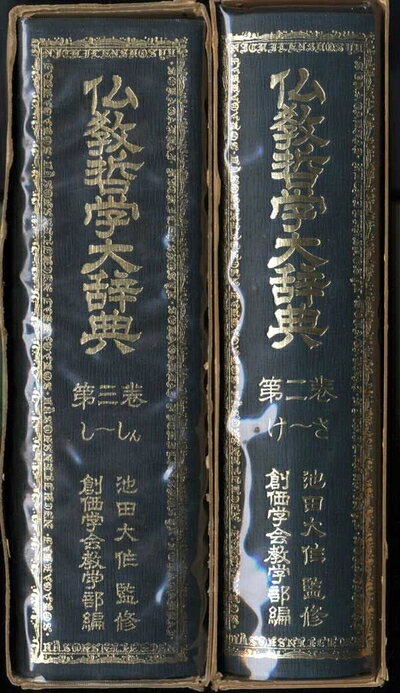 仏教哲学大辞典
第三巻
し〜しん
池田大作監修
創価学会教学部編
仏教哲学大辞典
第二巻
け〜さ
池田大作監修
創価学会教学部編